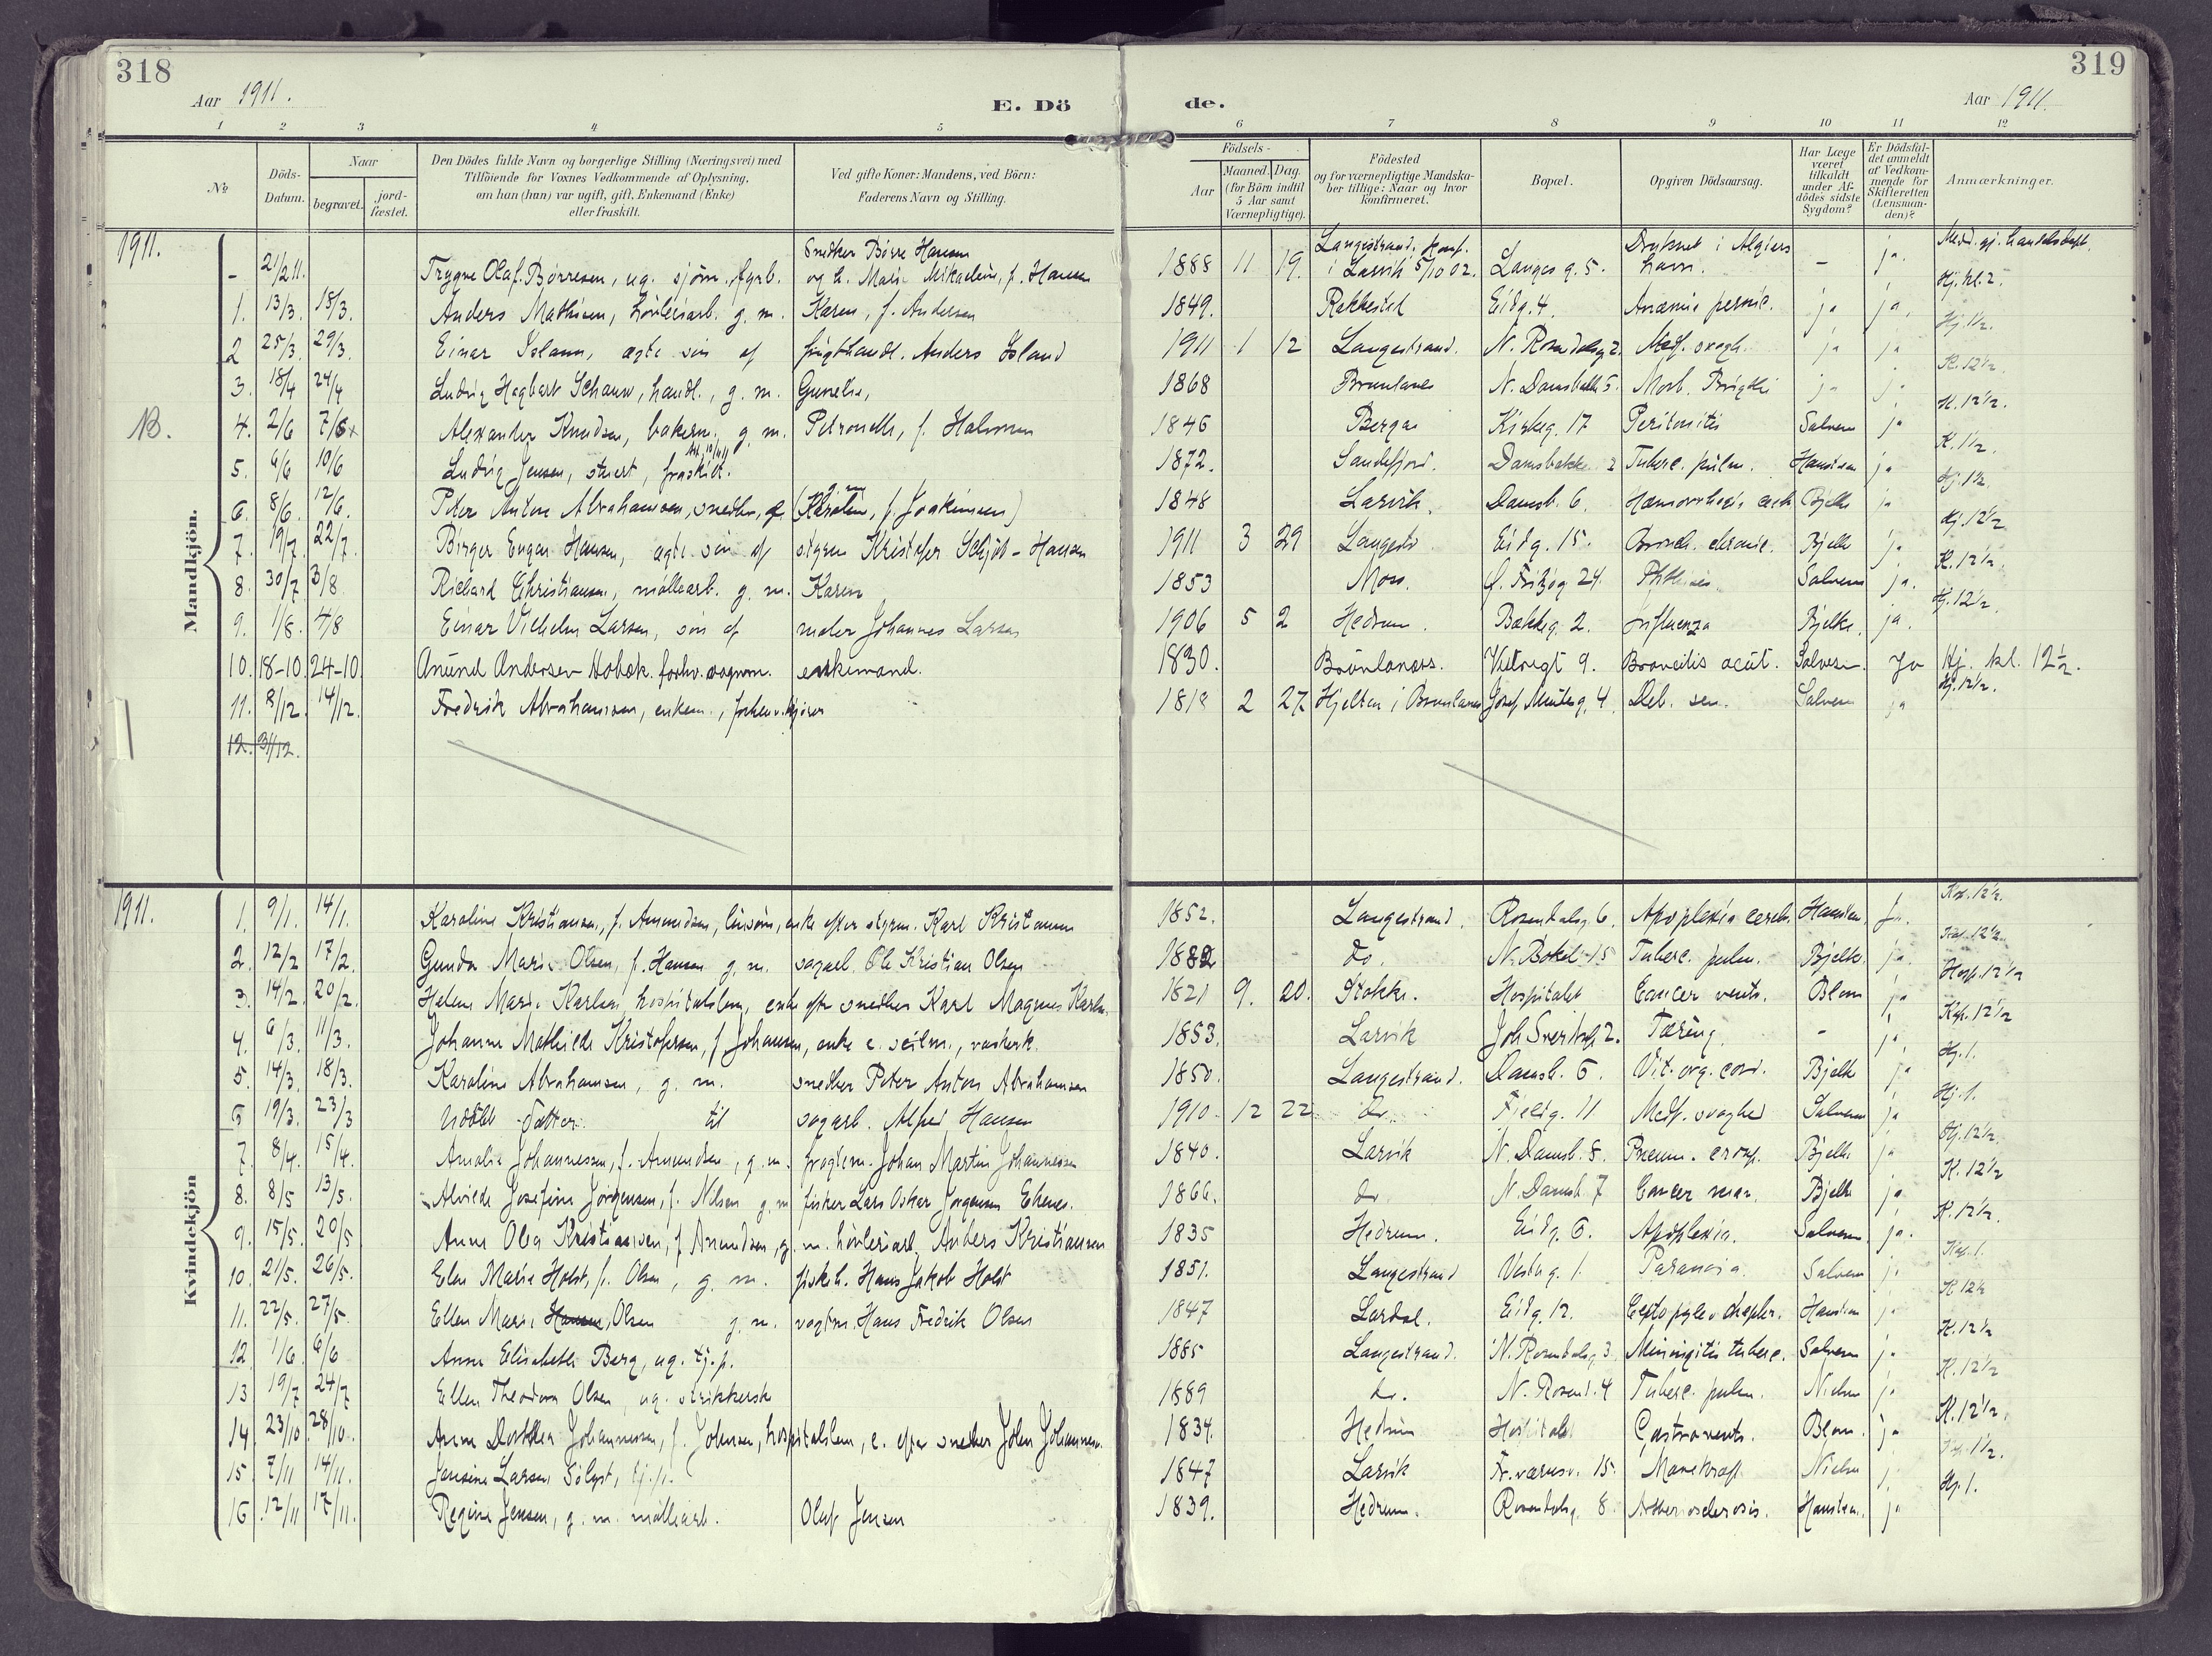 318
Aar 1911.
E. Dö
de.
Aar 1911.
319
1 2 3 4 5 6 7 8 9 10 11 12
No.
Döds-Datum.
Naar
begravet.
jord-fæstet.
Den Dödes fulde Navn og borgerlige Stilling (Næringsvei) med
Tilföiende for Voxnes Vedkommende af Oplysning,
om han (hun) var ugift, gift, Enkemand (Enke)
eller fraskilt.
Ved gifte Koner: Mandens, ved Börn:
Faderens Navn og Stilling.
Födsels-
Aar
Maaned. Dag.
(for Börn indtil
5 Aar samt
Værnepligtige).
Födested
og for værnepligtige Mandska-
ber tillige: Naar og hvor
konfirmeret.
Bopæl.
Opgiven Dödsaarsag.
Har Læge
været
tilkaldt
under Af-
dödes sidste
Sygdom?
Er Dödsfal-
det anmeldt
af Vedkom-
mende for
Skifteretten
(Lensman-
den)?
Anmærkninger.
1911.
Mandkjön.
- 21/2 11. Trygve Olaf Börresen, ug. sjöm. fyrb. Snedker Börre Hansen og h. Marie Mikaeline, f. Hansen 1888 11 19. Langestrand, konf. i Larvik 5/10 02. Langes g. 5. Druknet i Algiers havn. - ja.
1. 13/3. 18/3. Anders Mathisen, hövleriarb. g. m. Karen, f. Andersen 1849. Rakkestad Eidg. 4. Anæmia pernic. ja ja. Kj. kl. 2.
2 25/3. 29/3. Einar Island, ægte sön af frugthandl. Anders Island 1911 1 12 Langestrand. N. Rosendalsg 2. Medf. svagh. ja ja Kj. 1 1/2.
3. 18/4 24/4 Ludvig Hagbart Schauw, handl., g. m. Gunelie, 1868 Brunlanes N. Damsbakk 5. Morb. Brigthi ja ja K. 12 1/2.
NB. 4. 2/6 7/6 Alexander Knudsen, bakerm. g. m. Petronelle, f. Halvorsen 1846 Bergen Kirkeg. 17 Peritonitis Salvesen ja K. 12 1/2.
5. 6/6 10/6 Ludvig Jensen, stuert, fraskilt. 1872. Sandefjord. Damsbakke 2 Tuberc. pulm. Hanssen ja K. 1 1/2.
6. 8/6. 12/6. Peter Anton Abrahamsen, snedker, (Karoline, f. Joakimsen) 1848 Larvik. Damsb. 6. Hæmorrhagia cereb. Bjelke ja Kj. 1 1/2.
7. 19/7. 22/7. Birger Eugen Hansen, ægte sön af styrm Kristofer Schjöt-Hansen 1911 3 29 Langestr. Eidg. 15. Bronch. chronic. Bjelke ja Kj. 12 1/2
8. 30/7 3/8 Richard Christiansen, möllearb. g. m. Karen 1853 Moss. Ö. Fritzög 24. Phthisis. Salvesen ja. K. 12 1/2.
9. 1/8. 4/8 Einar Vilhelm Larsen, sön af maler Johannes Larsen 1906 5 2 Hedrum. Bakkeg. 2. Influenza Bjelke. ja. Kj. 12 1/2.
10. 18-10. 24-10 Anund Andersen Hobæk. forhv. vognm. enkemand. 1830. Brunlanes. Vestregt 9. Broncitis acut. Salvesen Ja Kj. kl. 12 1/2.
11. 8/12. 14/12. Fredrik Abrahamsen, enkem., forhenv. kjörer 1818 2 27 Hjelten i Brunlanes Josef Meulsg. 4. Deb. sen. Salvesen ja Kj. 12 1/2.
12. 31/12.
1911.
Kvindekjön
1. 9/1. 14/1. Karoline Kristiansen, f. Amundsen, linsöm, enke efter styrm. Karl Kristiansen 1852. Langestrand. Rosendalsg 6. Apoplexia cereb. Hanssen. ja. Kap. 12 1/2.
2. 12/2 17/2. Gunda Marie Olsen, f. Hansen g. m. sagarb. Ole Kristian Olsen 1882 do. N. Bökel. 15 Tuberc. pulm. Bjelke ja. Kap. 12 1/2
3. 14/2. 20/2. Helene Marie Karlsen hospitalslem, enke efter snedker Karl Magnus Karlsen. 1821 9. 20. Stokke. Hospitalet Cancer ventr. Blom ja Hosp. 12 1/2
4. 6/3. 11/3. Johanne Mathilde Kristofersen, f Johansen, enke e. seilm., vaskerk. 1853. Larvik Joh Sverdrupg 2. Tæring. - ja. Kap. 12 1/2
5. 14/3 18/3. Karoline Abrahamsen, g. m. snedker Peter Anton Abrahamsen 1850. Langestrand. Damsb. 6. Vit. org. cord. Bjelke ja Kj. 1.
6 19/3. 23/3 Udöbt datter til sagarb. Alfred Hansen 1910 12 22 do. Fieldg. 11 Medf. svaghed Salvesen ja Kj. 1.
7. 8/4. 15/4. Amalie Johannessen, f. Amundsen, g. m. fragtem. Johan Martin Johannessen 1840. Larvik N. Damsb. 8. Pneum. croup. Bjelke ja Kj. 12 1/2.
8. 8/5 13/5. Alvilde Josefine Jörgensen, f. Nilsen g m fisker Lars Oskar Jörgensen Ekenes. 1866. do N. Damsb. 7 Cancer mam. Bjelke ja K. 12 1/2
9. 15/5. 20/5 Anne Olea Kristiansen, f Amundsen, g. m. hövleriarb. Anders Kristiansen 1835 Hedrum. Eidg. 6. Apoplexia. Salvesen ja. K. 12 1/2.
10. 21/5. 26/5. Elen Marie Holst, f. Olsen, g. m. fiskeh. Hans Jakob Holst 1851. Langestrand Vesteg. 1. Paranoia. Salvesen ja Kap. 1.
11. 22/5. 27/5. Ellen Marie Hansen, Olsen g. m. vogtm. Hans Fredrik Olsen 1847 Lardal. Eidg. 12. Hanssen ja K 12 1/2
12. 1/6. 6/6 Anna Elisabeth Berg, ug. tj. p. 1885 Langestrand. N. Rosendalsg 3. Miningitis tuberc. Salvesen ja K. 12 1/2
13 19/7 24/7 Ellen Theodora Olsen, ug. strikkersk 1889 do. N. Rosend. 4 Tuberc. pulm. Nielsen ja K. 12 1/2
14. 23/10 28/10. Anne Dorthea Johannessen, f. Johnsen, hospitalslem, e. efter snedker John Johannessen. 1834. Hedrum Hospitalet Castroventr. Blom. ja K. 12 1/2.
15. 7/11 14/11. Jensine Larsen Sölyst, tj. p. 1847 Larvik Fr. værnsv. 15. Marekraft Nielsen j. 1 1/2.
16 12/11 17/11. Regine Jensen, g. m. möllearb. Olaf Jensen 1839. Hedrum. Rosendalsg. 8. Artheriosclerosis. Hanssen. ja Kp. 1.